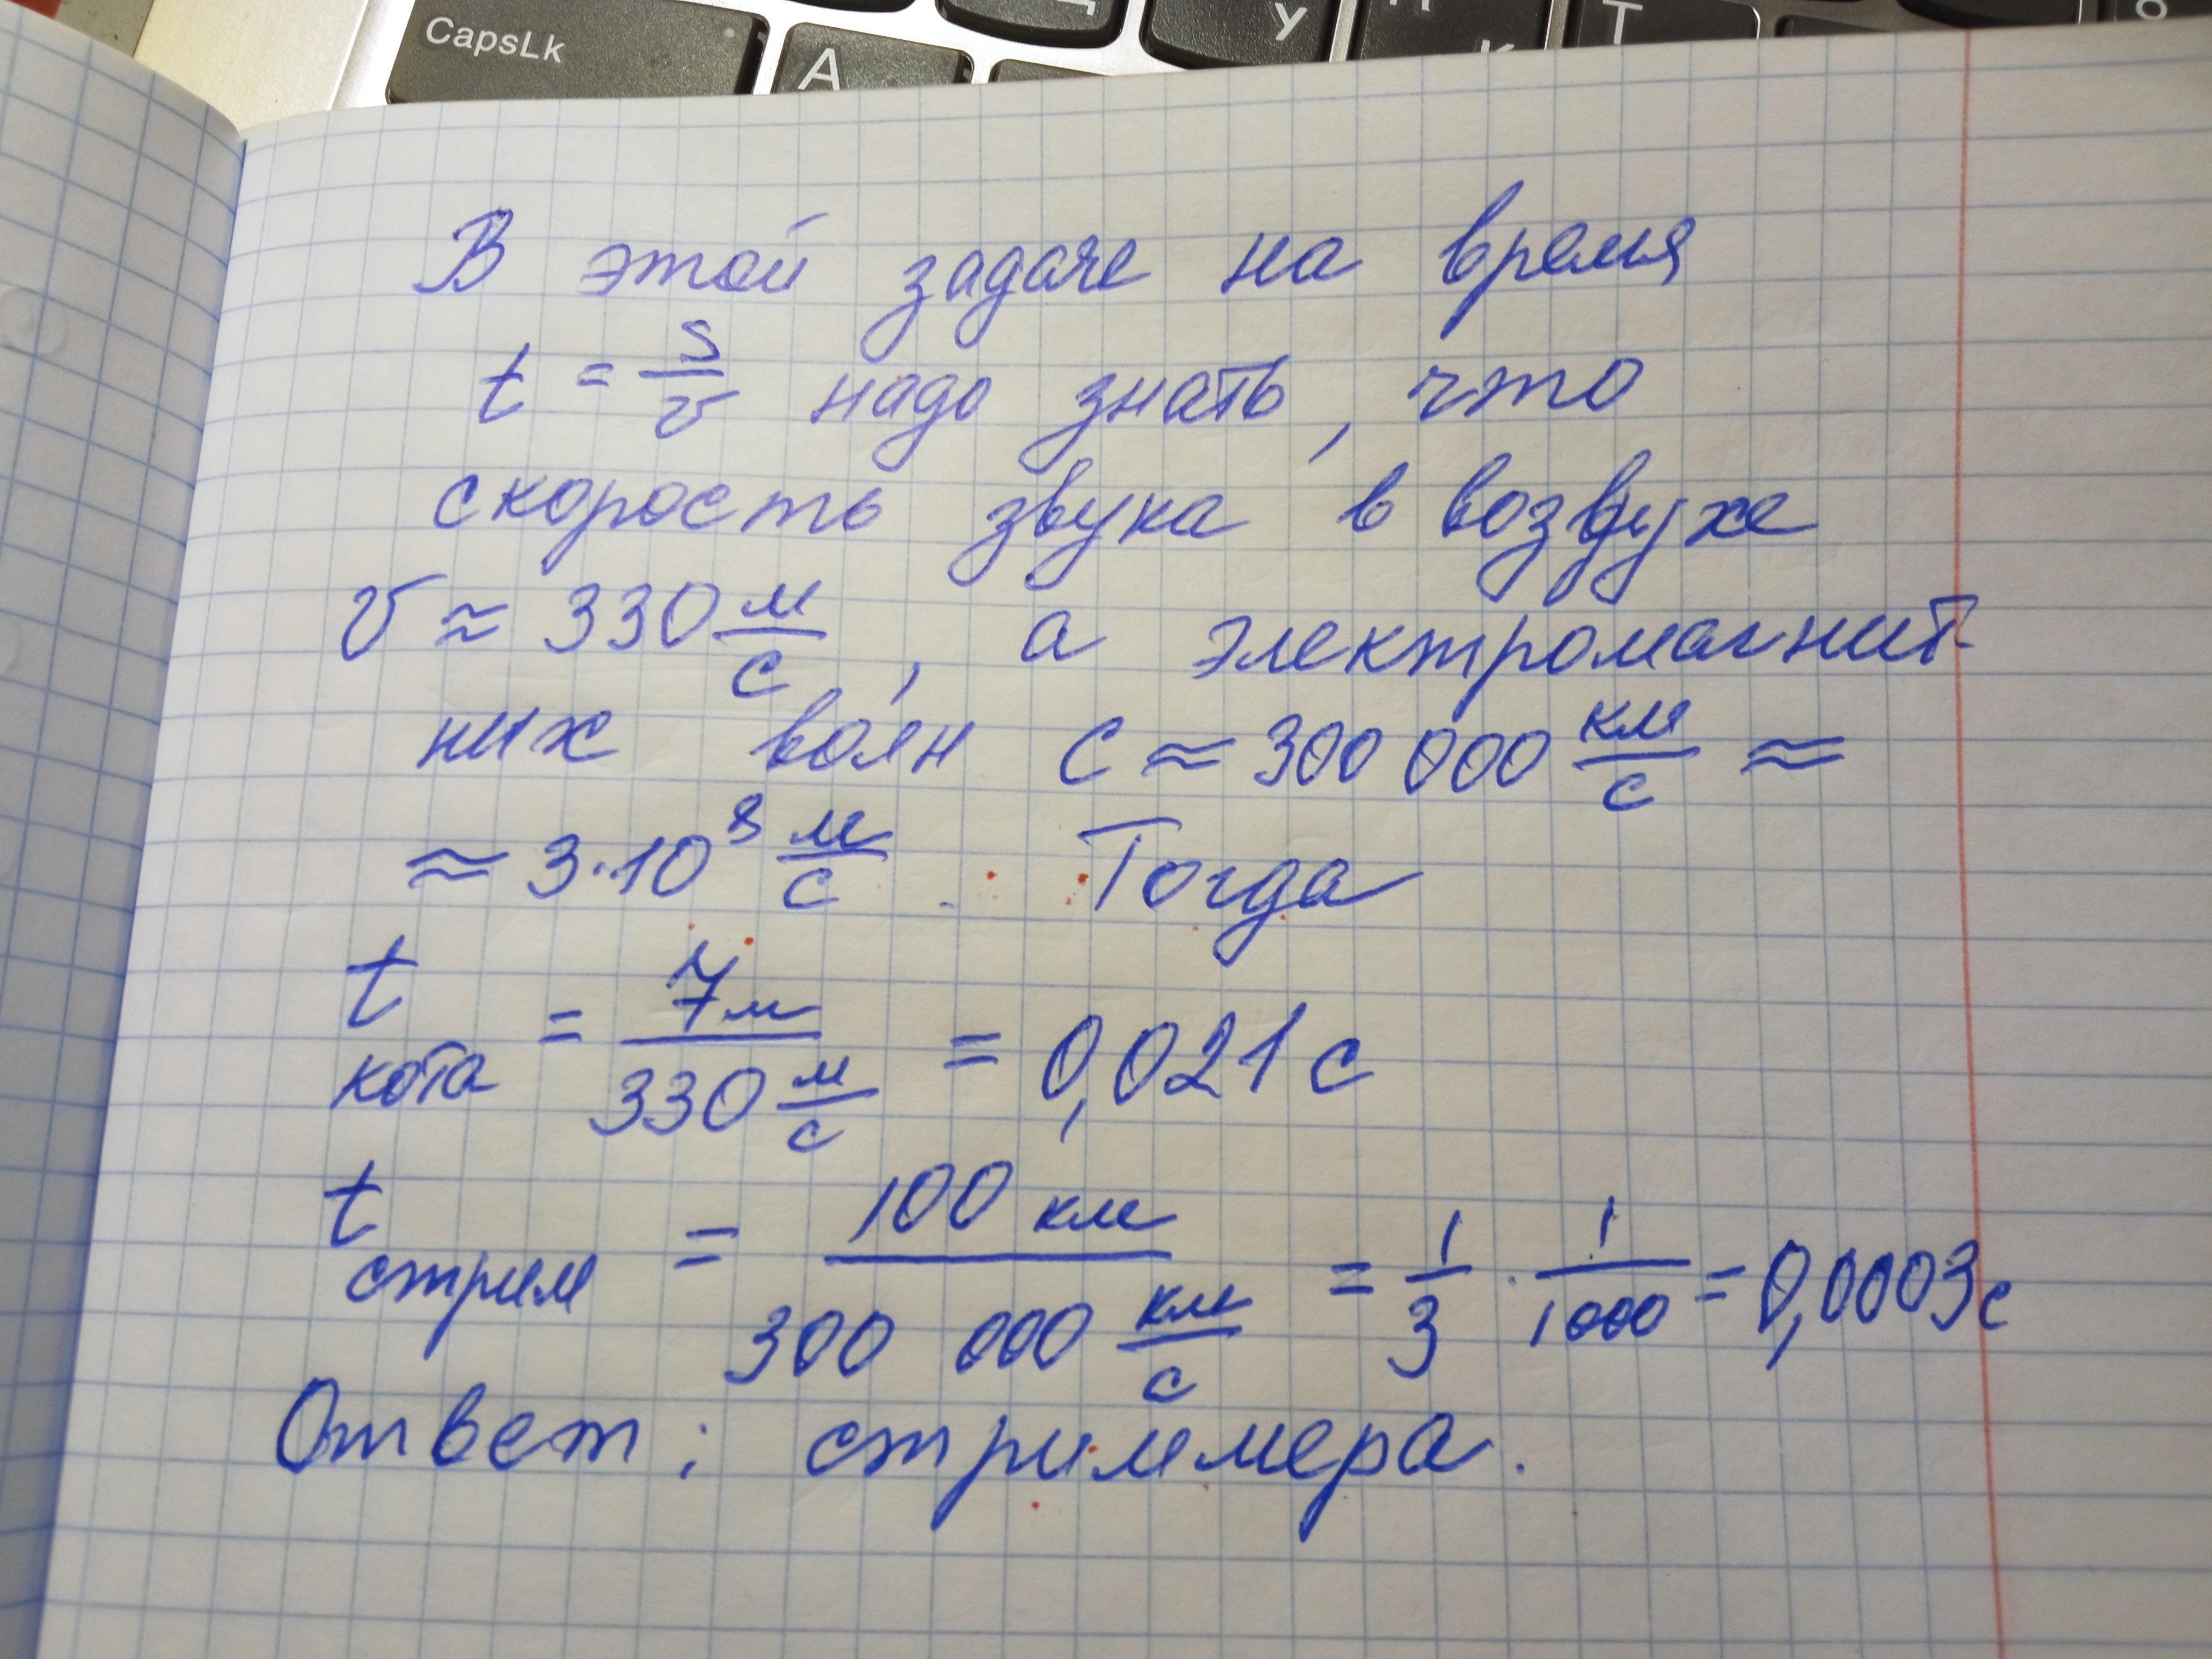 CapsLk A У К Т
В этой задаче на время
t = s/v надо знать, что
скорость звука в воздухе
v ≈ 330 м/с, а электромагнит-
них волн c ≈ 300 000 км/с ≈
≈ 3·10⁸ м/с. Тогда
t кота = 7м / 330 м/с = 0,021 с
t стрим = 100 км / 300 000 км/с = 1/3 · 1/1000 = 0,0003с
Ответ: стриммера.